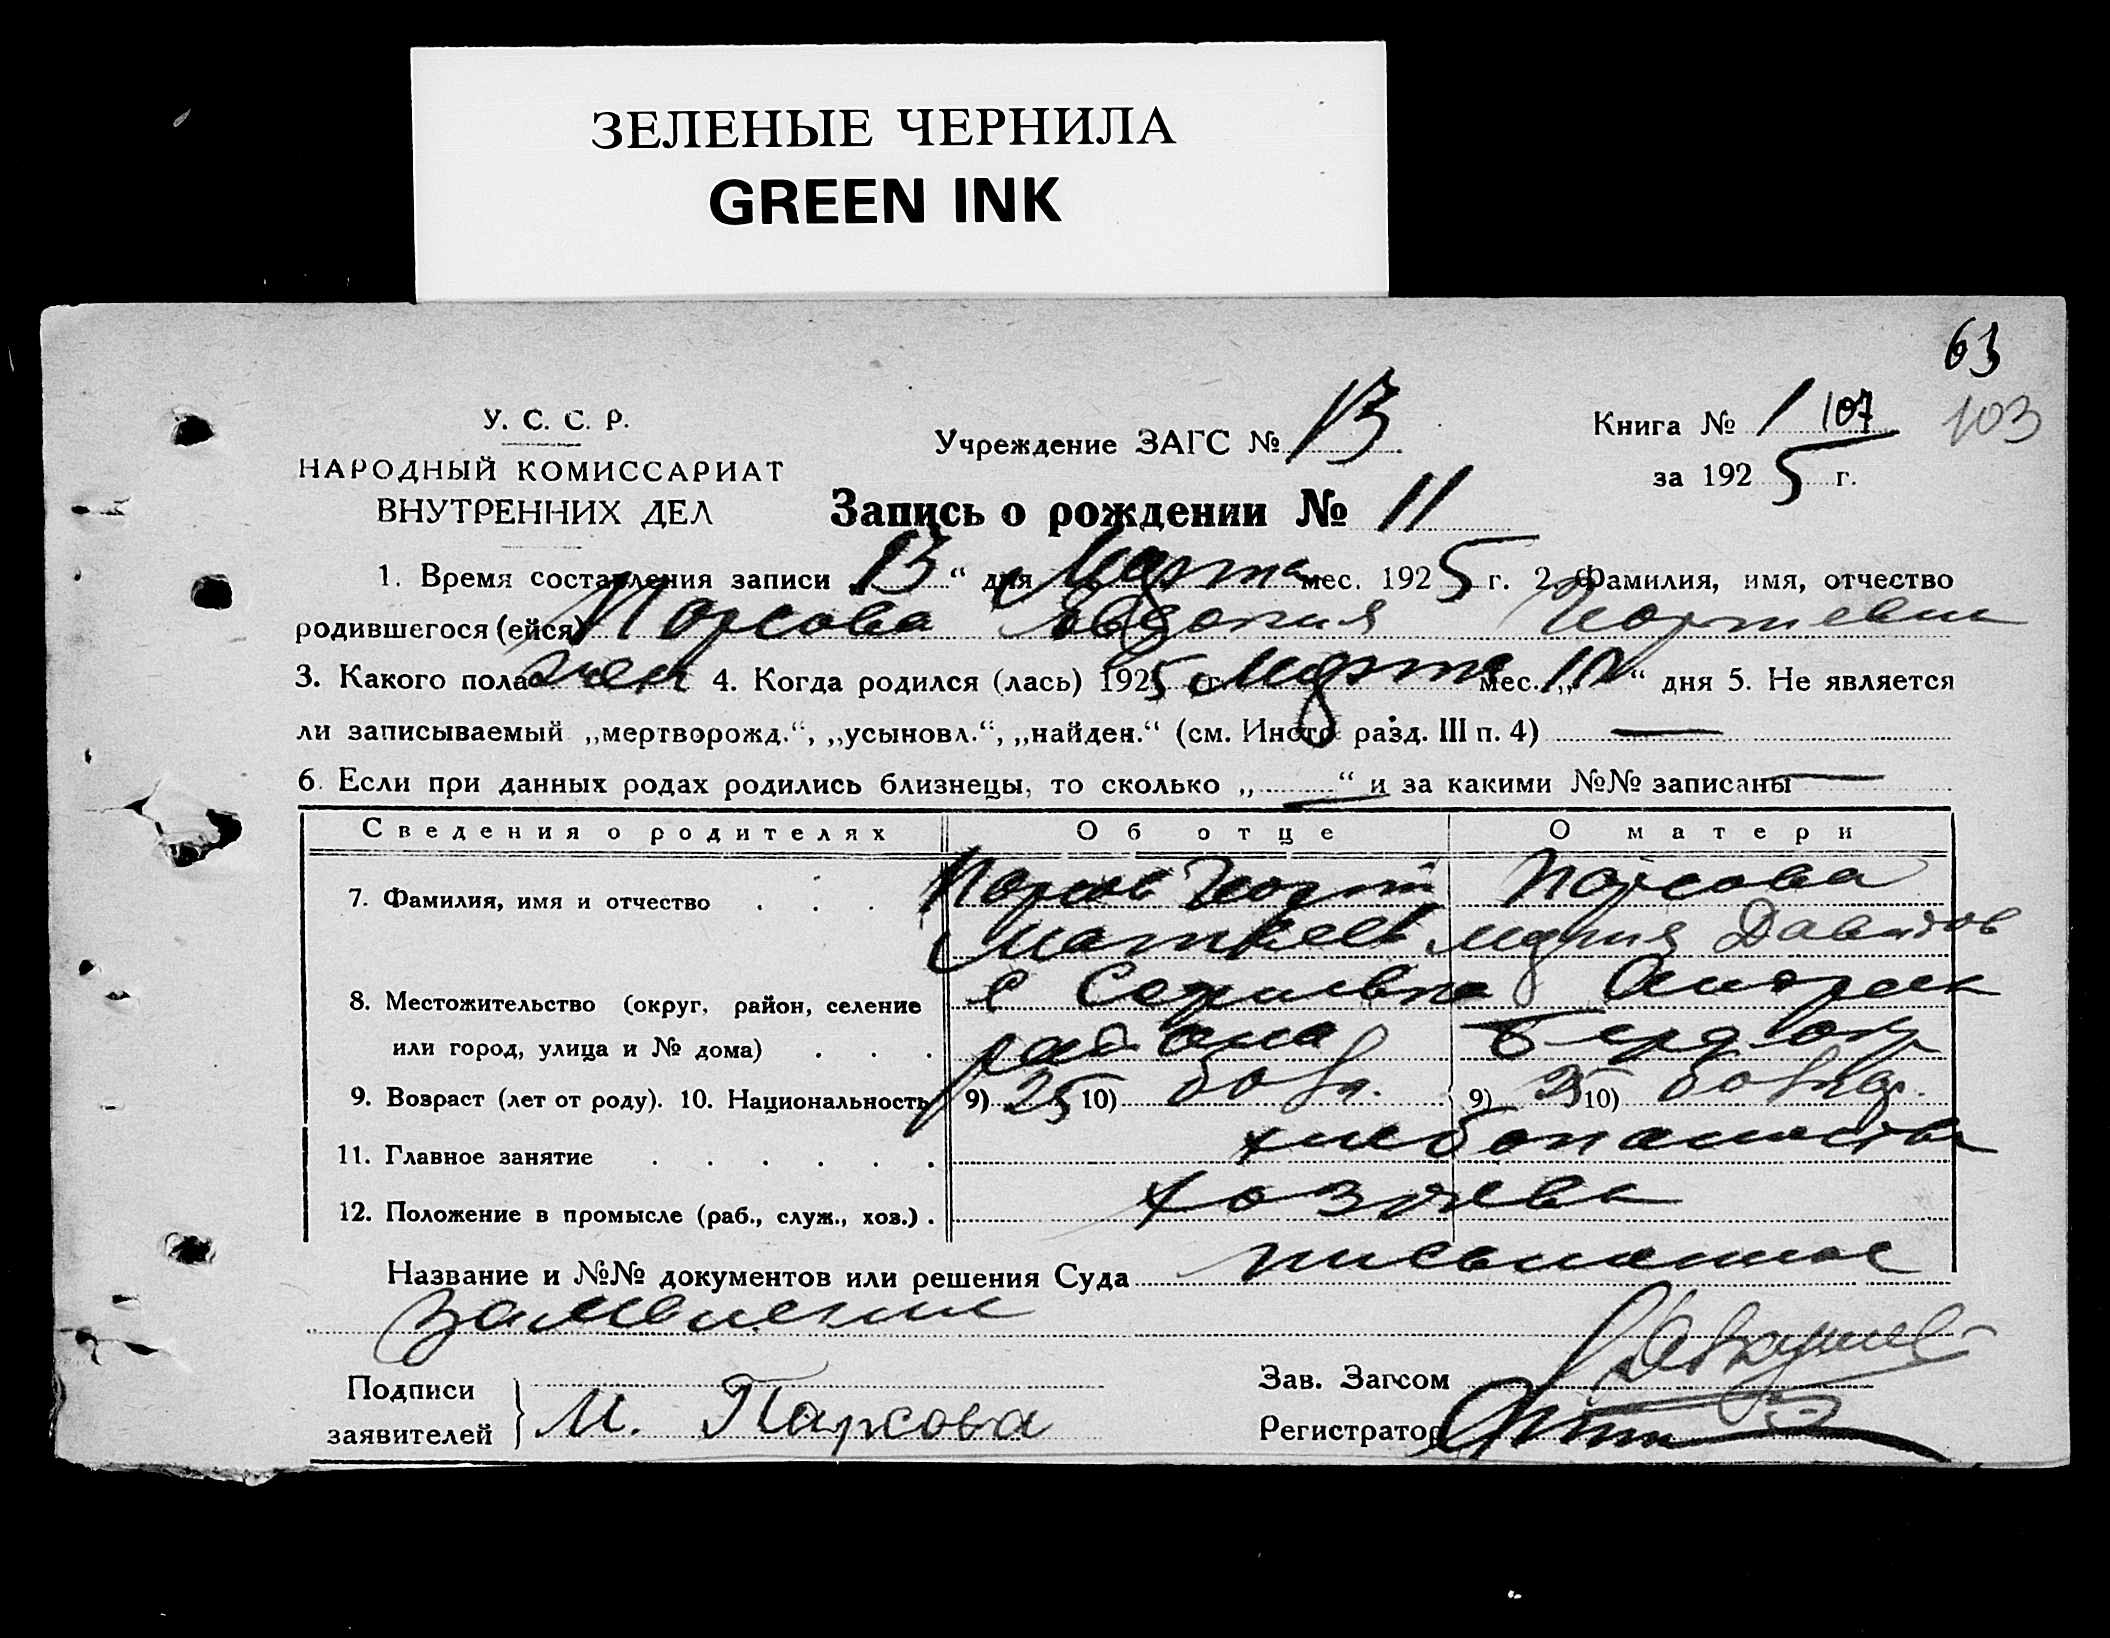 ЗЕЛЕНЫЕ ЧЕРНИЛА
GREEN INK
63
У. С. С. Р.
Учреждение ЗАГС № 13
Книга № 1 107 103
НАРОДНЫЙ КОМИССАРИАТ
ВНУТРЕННИХ ДЕЛ
за 1925 г.
Запись о рождении № 11
1. Время составления записи „13“ дня Марта мес. 1925 г. 2. Фамилия, имя, отчество
родившегося (ейся) Парсова Евдокия
3. Какого пола жен 4. Когда родился (лась) 1925 г. Марта мес. „12“ дня 5. Не является
ли записываемый „мертворожд.“, „усыновл.“, „найден.“ (см. Инстр. разд. III п. 4) —
6. Если при данных родах родились близнецы, то сколько „—“ и за какими №№ записаны —
Сведения о родителях Об отце О матери
7. Фамилия, имя и отчество . . . Парсов Парсова
Матвеев Мария Давидов
8. Местожительство (округ, район, селение с Софиевка Андреев
или город, улица и № дома) . . . района Берд окр
9. Возраст (лет от роду). 10. Национальность 9) 25 10) болг. 9) 25 10) болгар.
11. Главное занятие . . . . . . хлебопашество
12. Положение в промысле (раб., служ., хоз.) . хозяева
Название и №№ документов или решения Суда письменное
заявление
Подписи заявителей } М. Парсова
Зав. Загсом
Регистратор